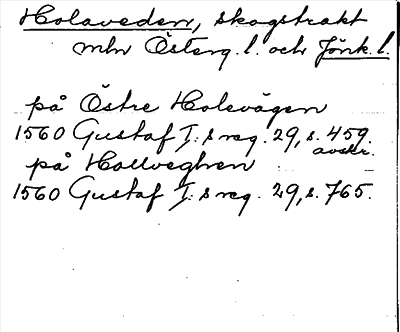 Holaveden, skogstrakt
mln Österg. l. och Jönk. l.
på Östre Holevägen
1560 Gustaf I:s reg. 29, s. 459.
avskr.
på Hollveghen
1560 Gustaf I:s reg. 29, s. 765.